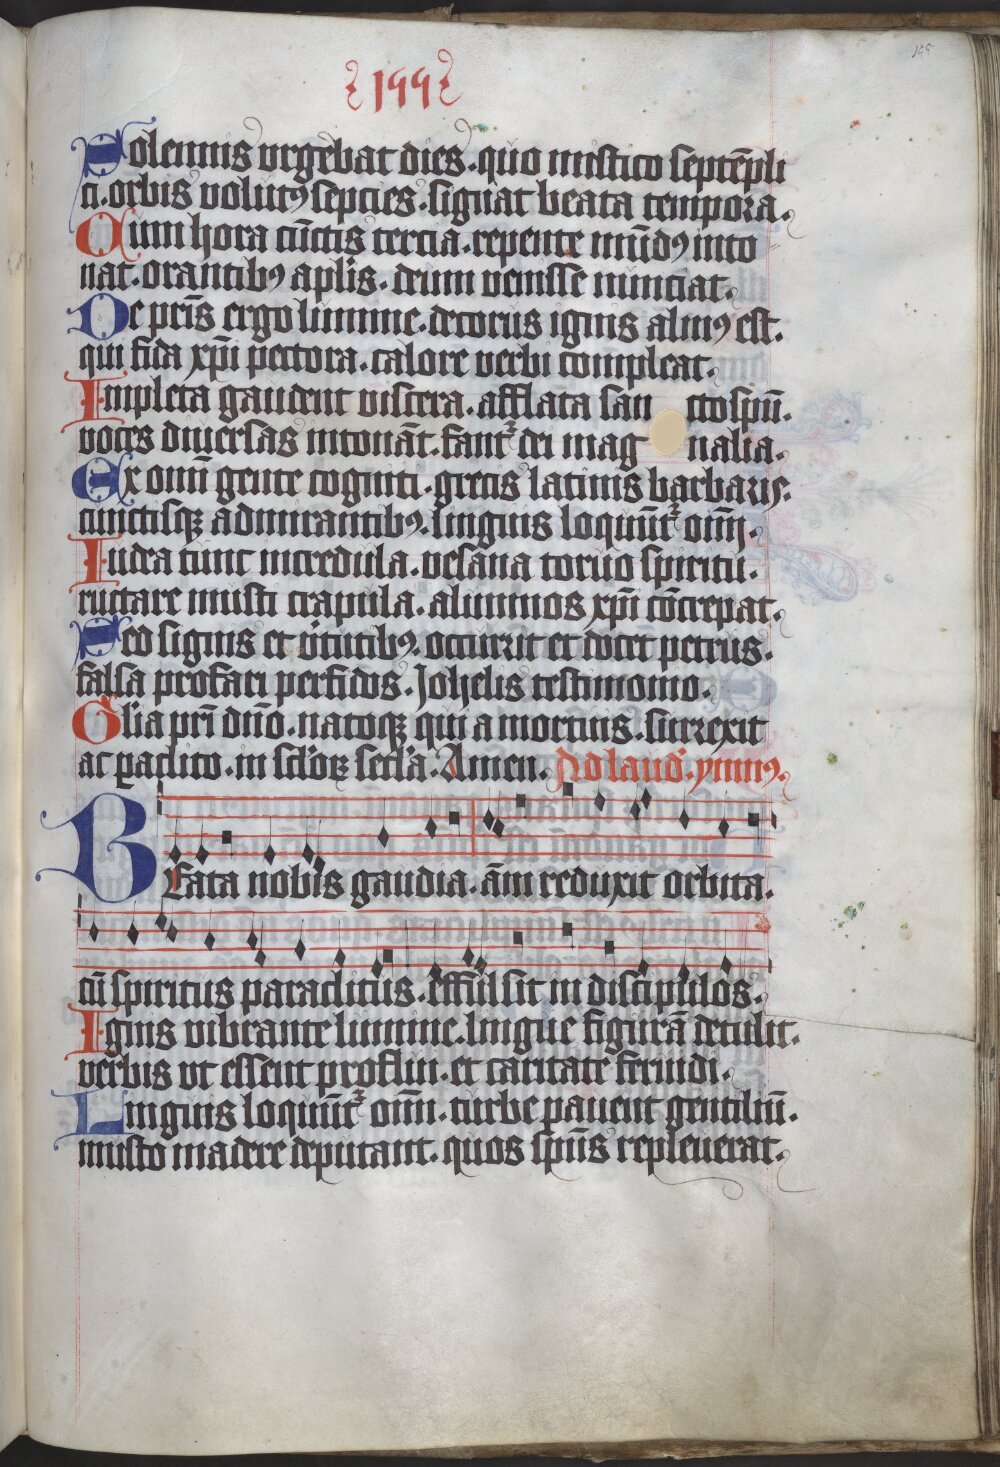 155
155
Solemnis urgebat dies. quo mistico septēpli
ci. orbis volutꝰ septies. signat beata tempora.
Cum hora cūctis tercia. repente mūdꝰ into
nat. orantibꝰ aplis. deum venisse nunciat.
De pr̄is ergo lumine. decorus ignis almꝰ est.
qui fida xp̄i pectora. calore verbi compleat.
Impleta gaudent viscera. afflata san cto sp̄u.
voces diversas intonāt. fantꝰ dei mag nalia.
Ex om̄i gente cogniti. grecis latinis barbaris.
cunctisqꝫ admirantibꝰ. linguis loquūtꝰ om̄i.
Iudea tunc incredula. vesana torvo spiritu.
ructare musti crapula. alumnos xp̄i cōcrepat.
Sed signis et v̄tutibꝰ. occurrit et docet petrus.
falsa profari perfidos. Johelis testimonio.
Glia pr̄i dn̄o. natoqꝫ qui a mortuis. surrexit
ac ꝑaclito. in sclōꝝ secl̄a. Amen. Ad laud̄. ymnꝰ.
Beata nobis gaudia. ān̄i reduxit orbita.
cū spiritus paraclitus. effulsit in discipulos.
Ignis vibrante lumine. lingue figurā detulit.
verbis ut essent proflui. et caritate fervidi.
Linguis loquūtꝰ om̄iū. turbe pavent gentiliū.
musto madere deputant. quos sp̄us repleverat.